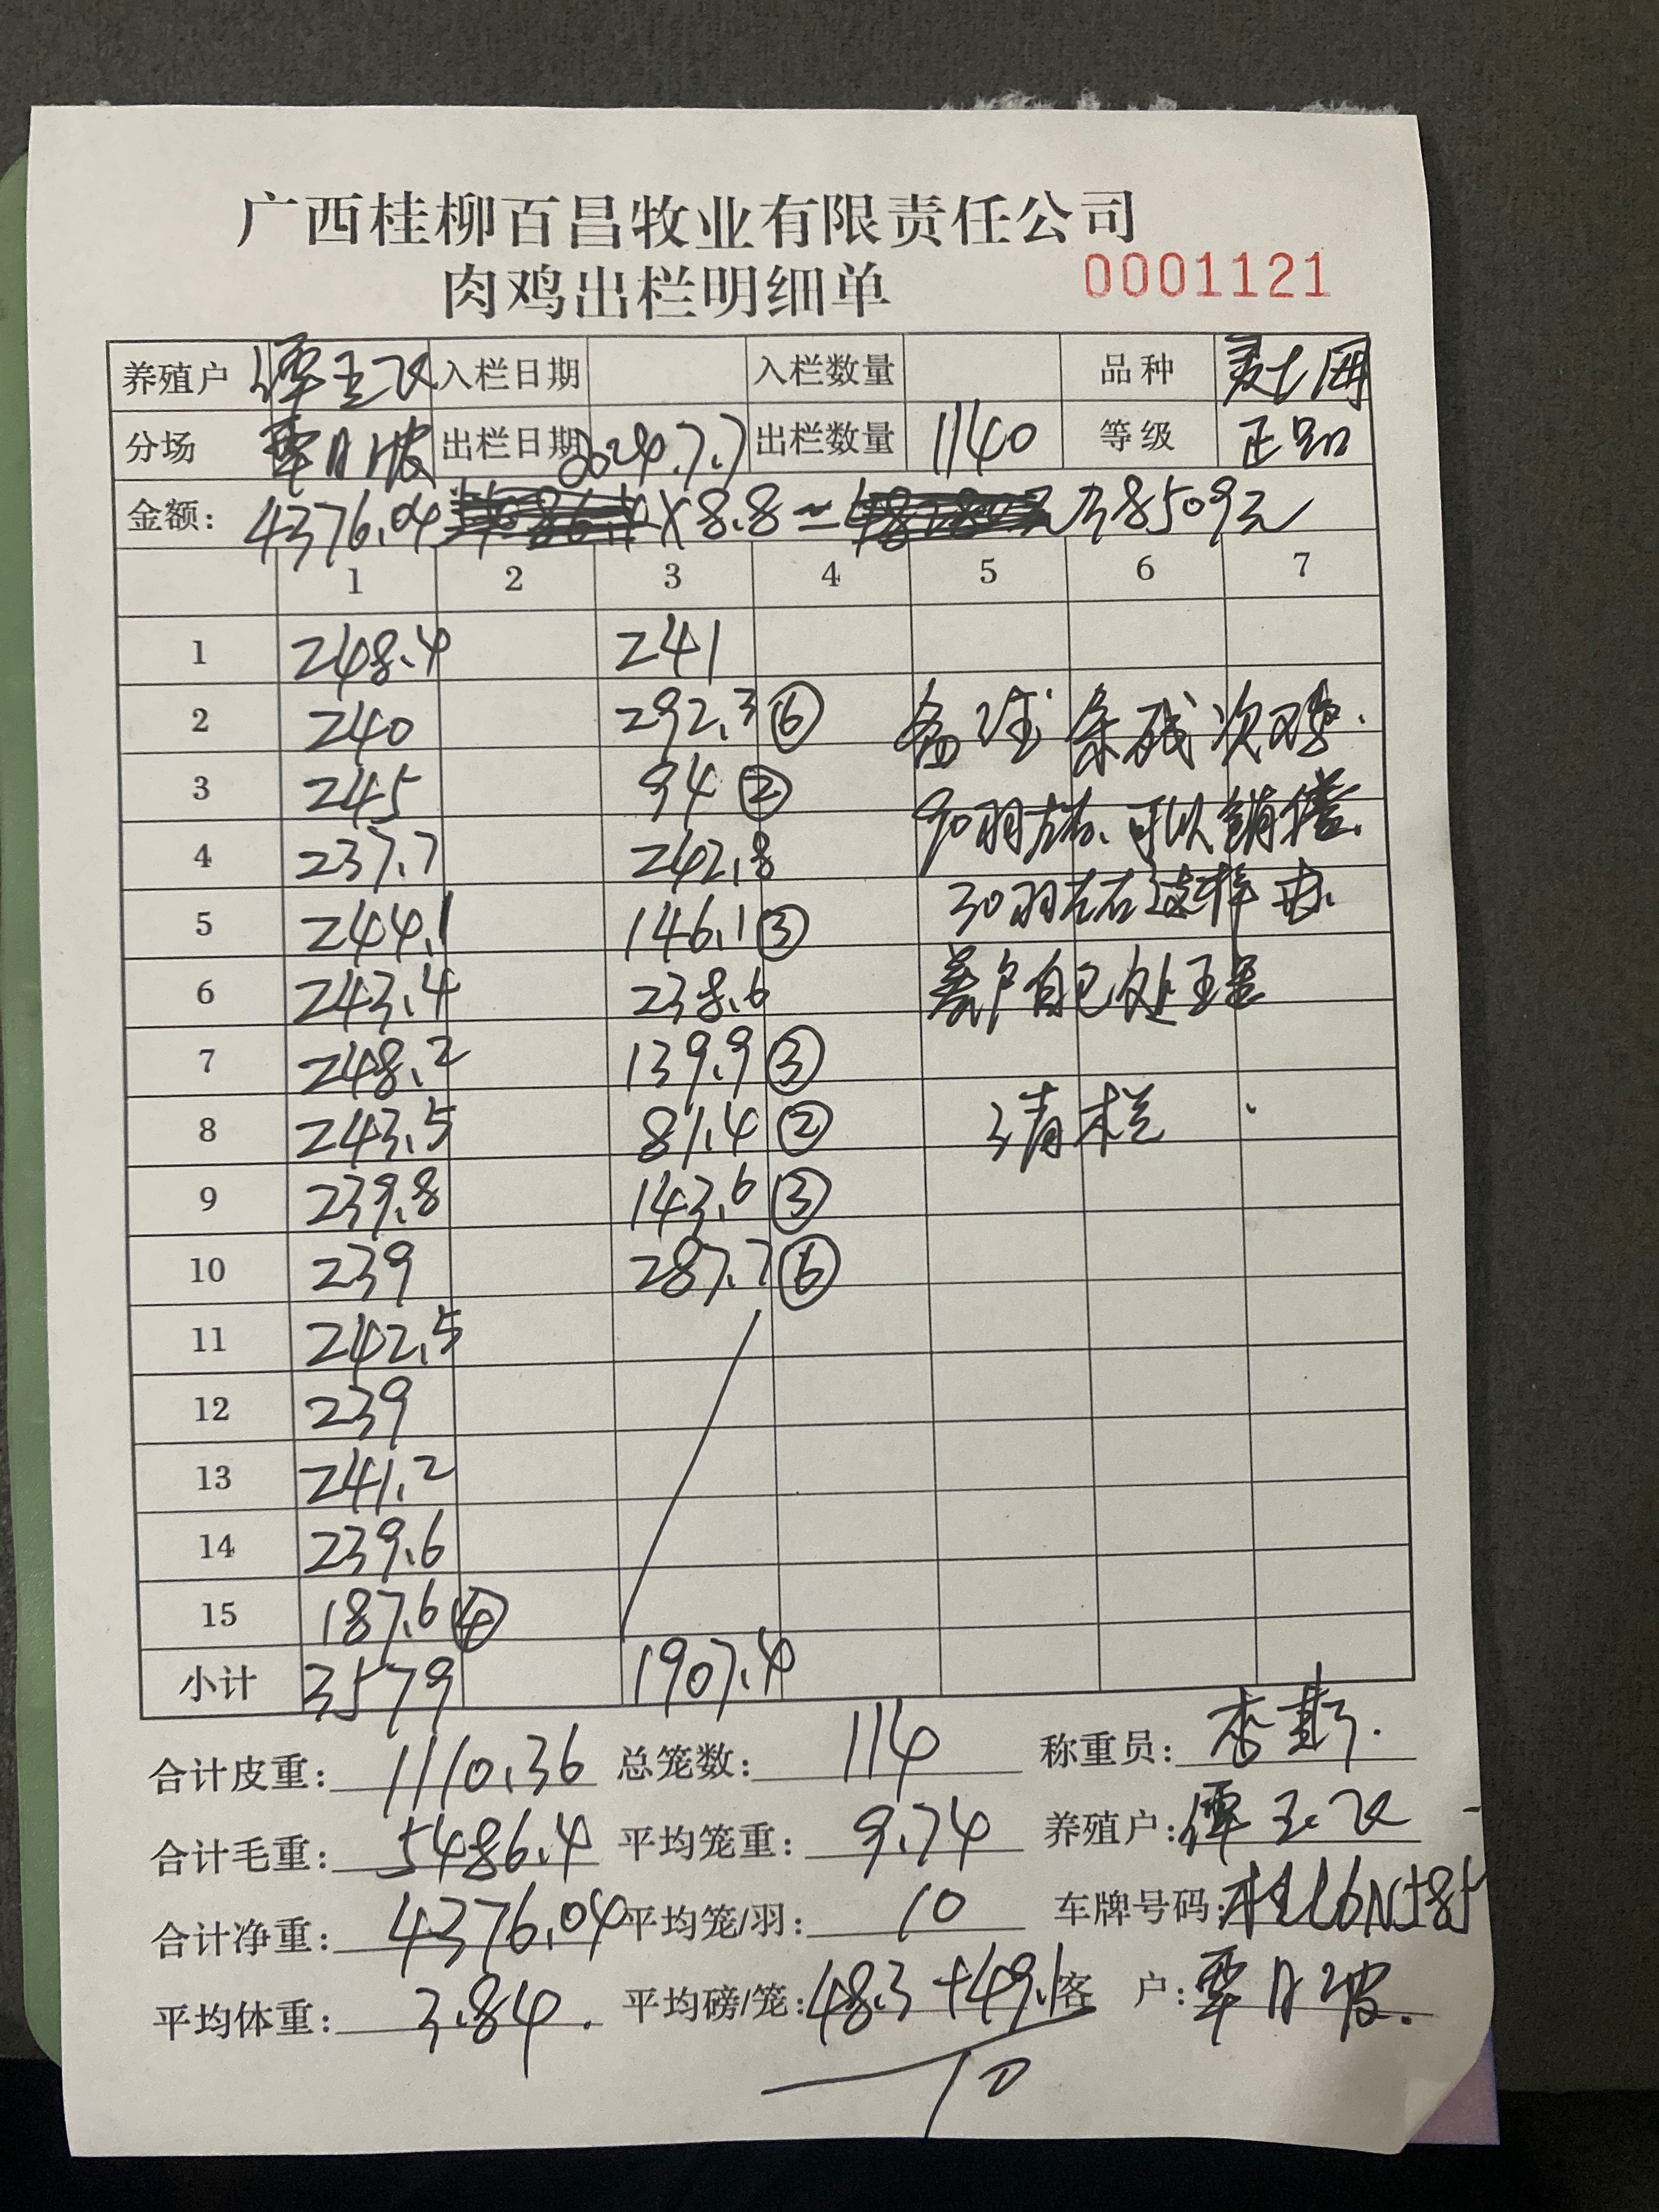 广西桂柳百昌牧业有限责任公司
肉鸡出栏明细单 0001121
养殖户 谭玉飞 入栏日期 入栏数量 品种
分场 出栏日期 2024.7.7 出栏数量 1140 等级 正品
金额: 4376.04 X8.8= 38509元
1 2 3 4 5 6 7
1 248.4 241
2 240 292.3 ⑥ 备注 条残次鸡.
3 245 94 ② 90羽左右、可以销售.
4 237.7 242.8
5 244.1 146.1 ③ 30羽左右这样 由
6 243.4 238.6 养户自己处理
7 248.2 139.9 ③
8 243.5 81.4 ② 清栏
9 239.8 143.6 ③
10 239 287.7 ⑥
11 242.5
12 239
13 241.2
14 239.6
15 187.6 ④
小计 3579 1907.4
合计皮重: 1110.36 总笼数: 114 称重员:
合计毛重: 5486.4 平均笼重: 9.74 养殖户: 谭玉飞
合计净重: 4376.04 平均笼/羽: 10 车牌号码:
平均体重: 3.84. 平均磅/笼: 48.3+49.1 客 户:
10